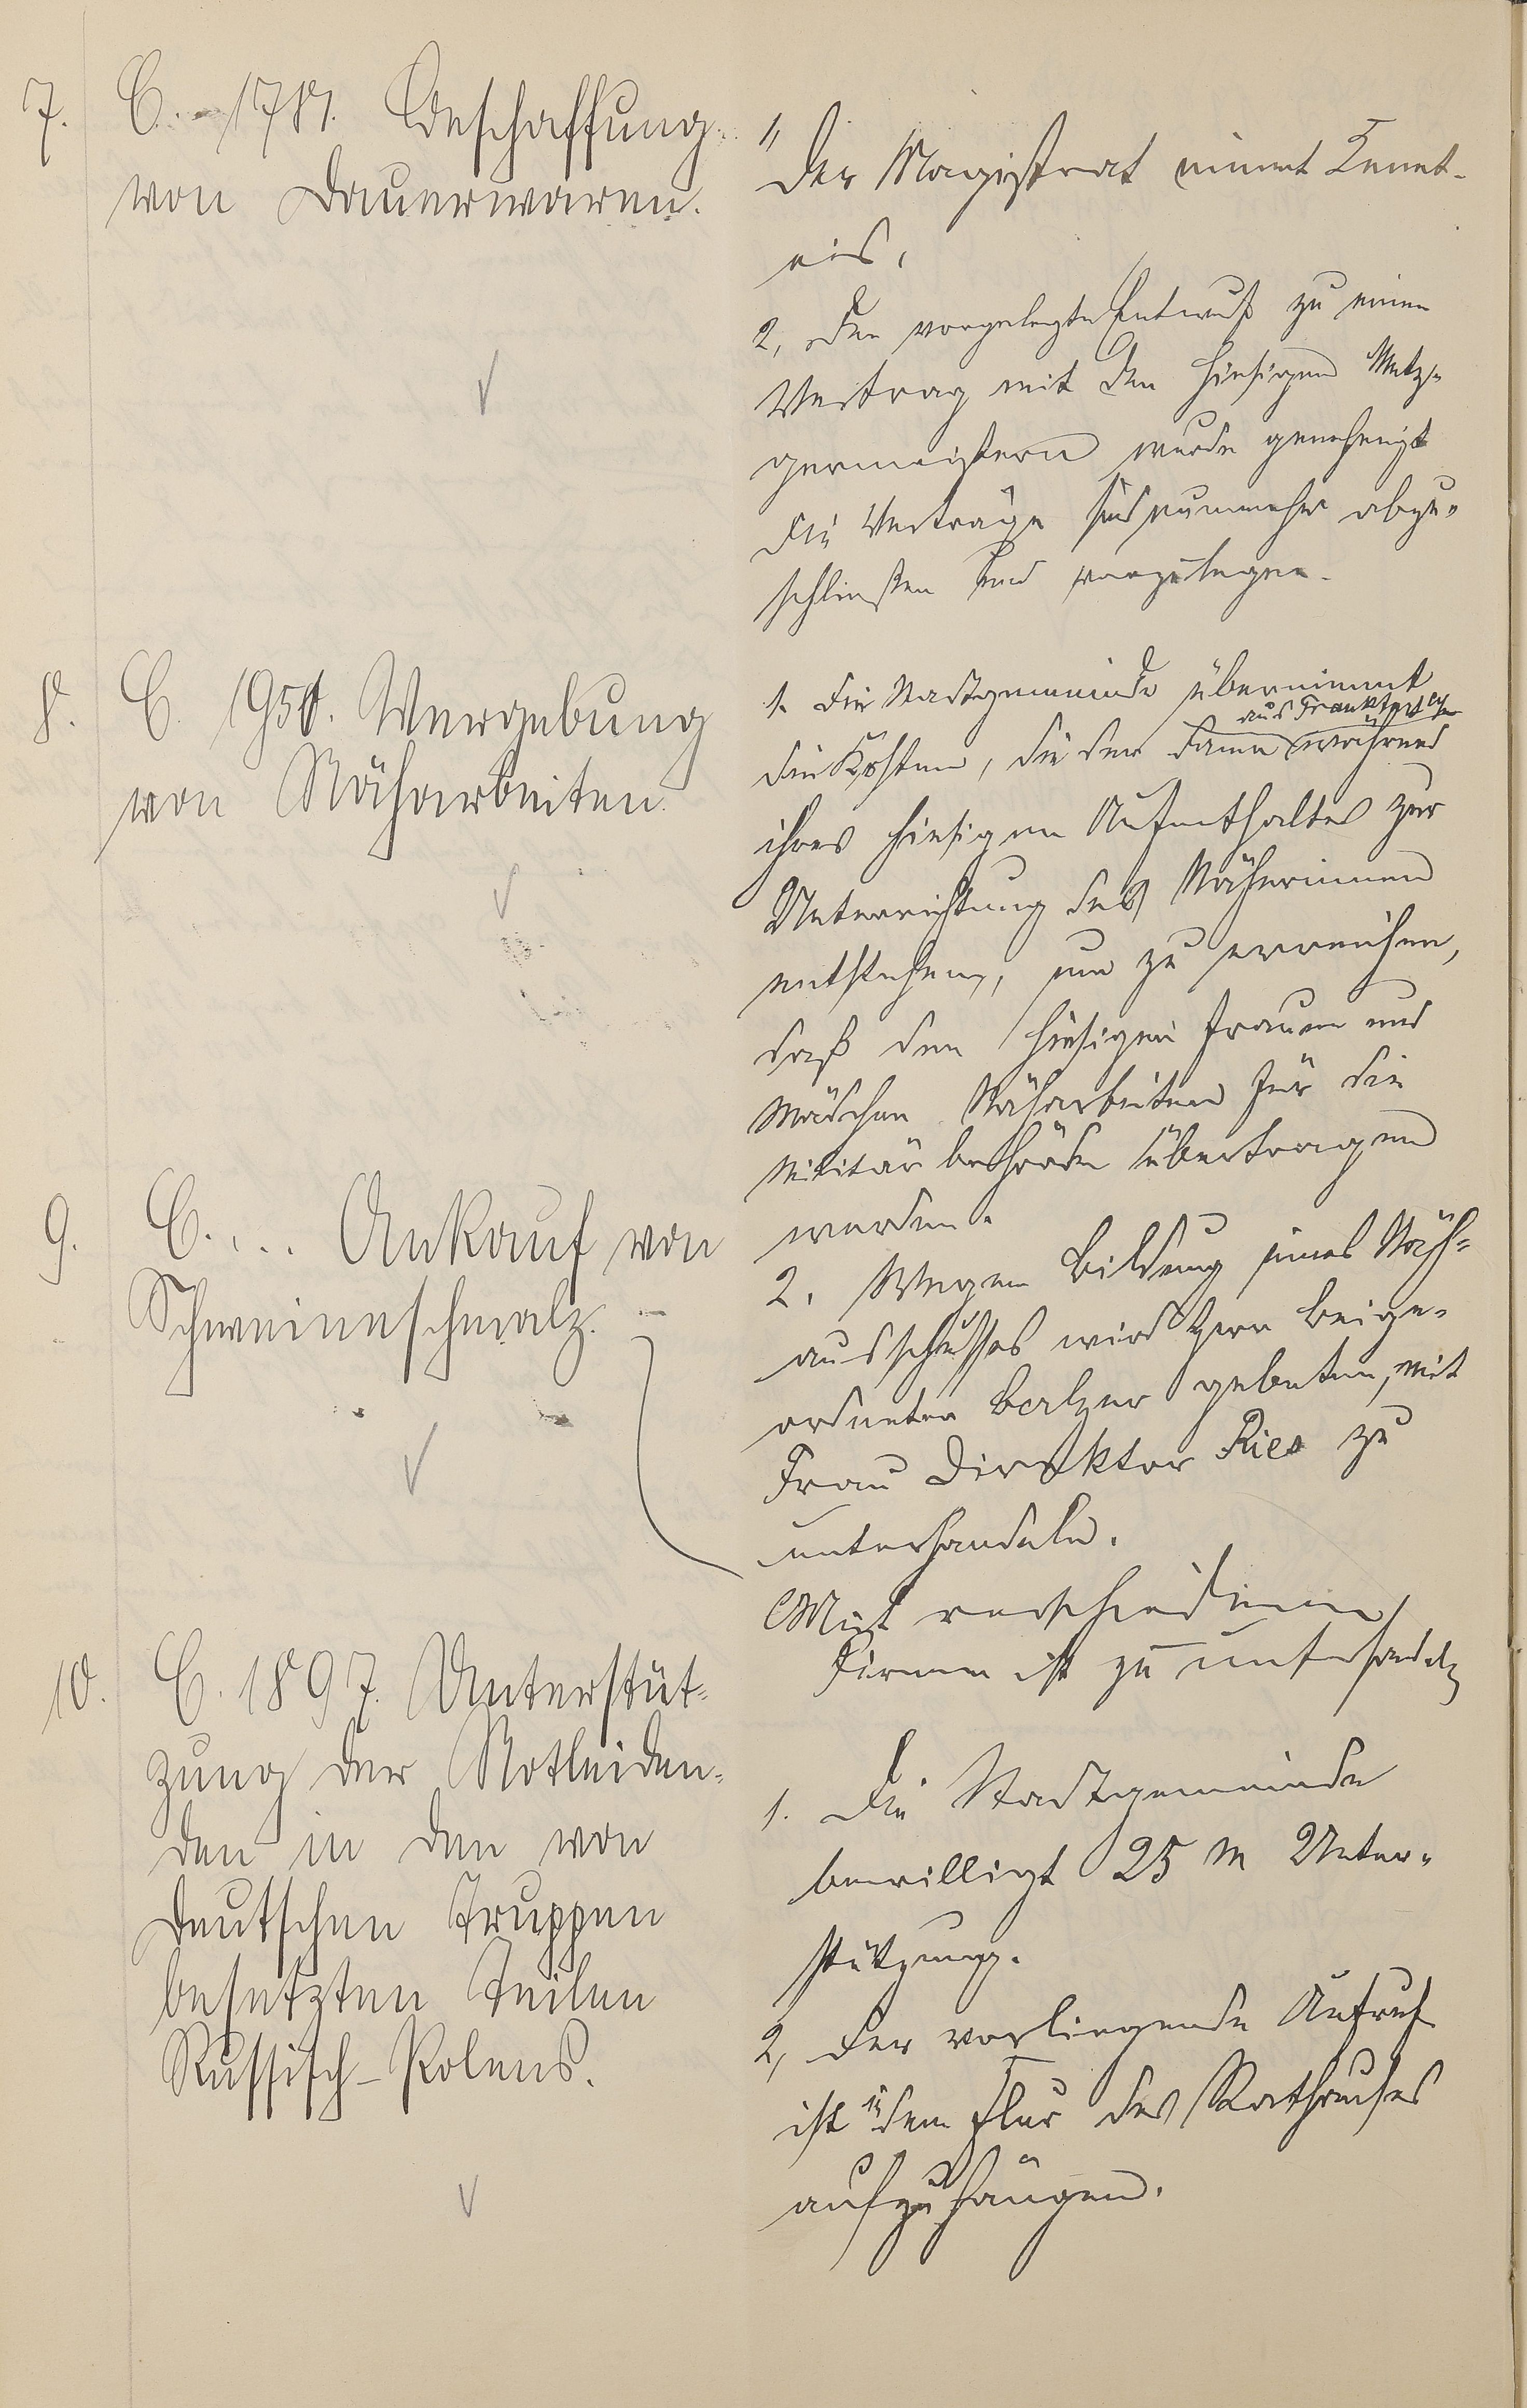 7. C. 1781. Beschaffung
von Dauerwaren.
1, Der Magistrat nimmt Kennt-
nis.
2, Der vorgelegte Entwurf zu einem
Vertrag mit den hiesigen Metz-
germeistern wurde genehmigt
Die Verträge sind nunmehr abzu-
schließen und vorzulegen.
8. C. 1950. Vergebung
von Näharbeiten.
1. Die Stadtgemeinde übernimmt
die Kosten, die der Dame aus Frankfurt während
ihres hiesigen Aufenthaltes zur
Unterrichtung der Näherinnen
entstehen, um zu erreichen,
daß den hiesigen Frauen und
Mädchen Näharbeiten für die
Militärbehörde übertragen
werden.
2. Wegen Bildung eines Näh-
ausschusses wird Herr Beige-
ordneter Balzer gebeten, mit
Frau Direktor Ries zu
unterhandeln.
9. C. ... Ankauf von
Schweineschmalz.
Mit verschiedenen
Firmen ist zu unterhandeln
10. C. 1897. Unterstüt-
zung der Notleiden-
den in den von
deutschen Truppen
besetzten Teilen
Russisch-Polens.
1. Die Stadtgemeinde
bewilligt 25 M Unter-
stützung.
2, Der vorliegende Aufruf
ist in dem Flur des Rathauses
aufzuhängen.